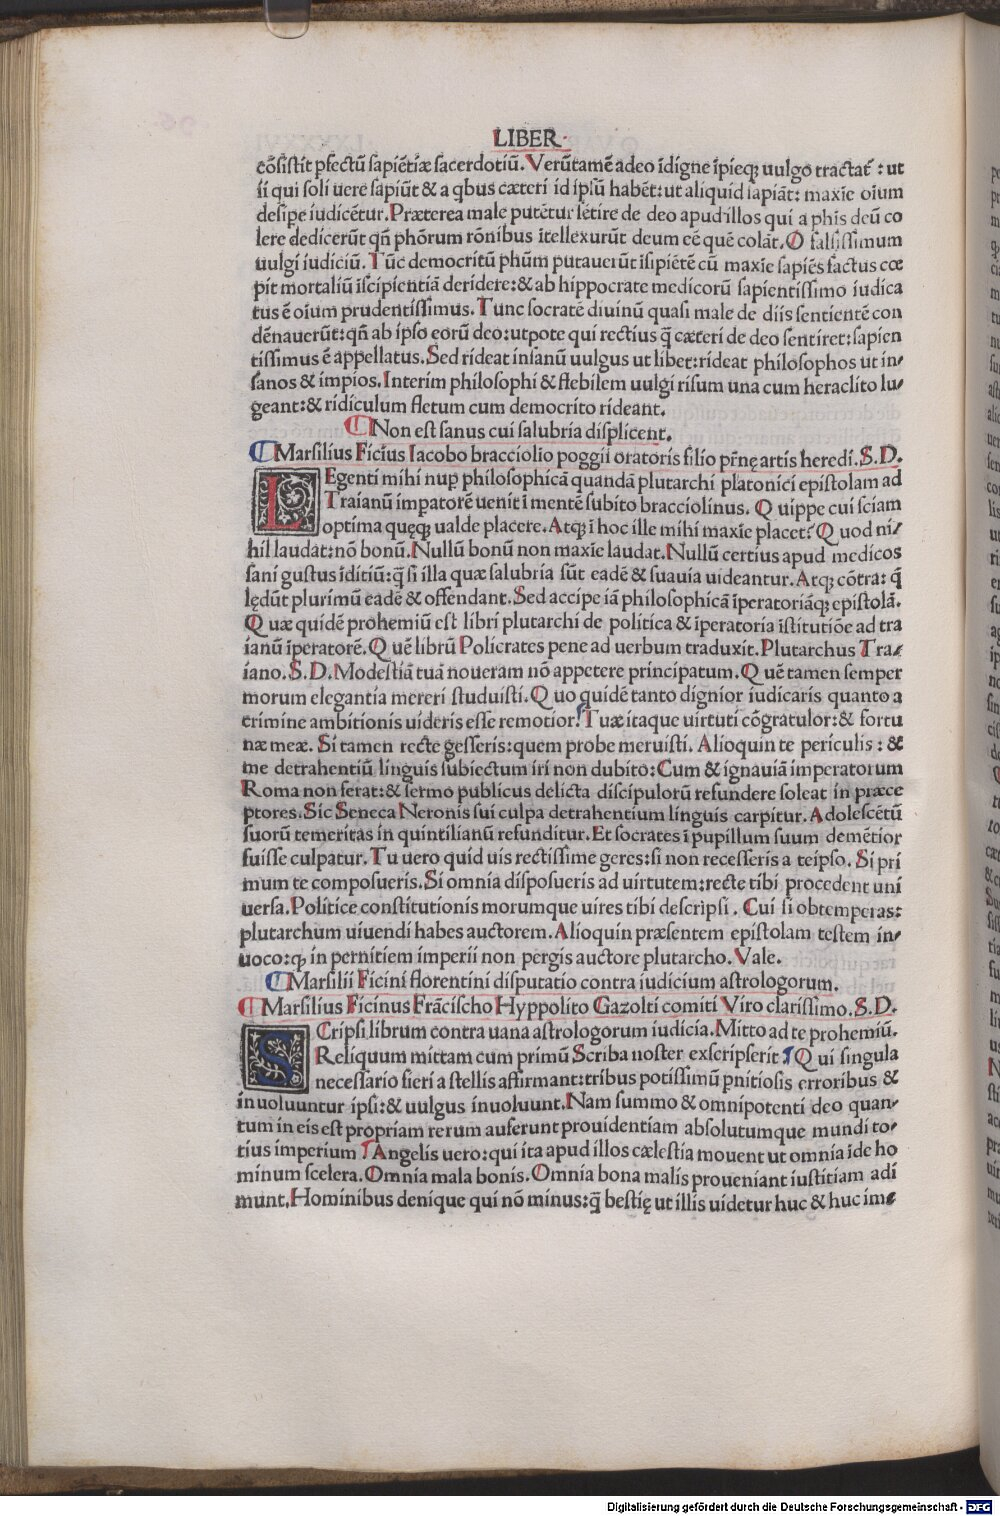 LIBER
cõsistit pfectũ sapiẽtiæ sacerdotiũ. Verũtamẽ adeo ĩdigne ĩpieq; uulgo tractat᷑: ut
ii qui soli uere sapiũt & a qbus cæteri id ipsũ habẽt: ut aliquid sapiãt: maxĩe oĩum
desipe iudicẽtur. Præterea male putẽtur sẽtire de deo apud illos qui a phis deũ co
lere dedicerũt qñ phõrum rõnibus ĩtellexurũt deum cẽ quẽ colãt. O falsissimum
uulgi iudiciũ. Tũc democritũ phũm putauerũt ĩsipiẽtẽ cũ maxĩe sapiẽs factus cœ
pit mortaliũ ĩscipientiã deridere: & ab hippocrate medicorũ sapientissimo iudica
tus ẽ oĩum prudentissimus. Tunc socratẽ diuinũ quasi male de diis sentientẽ con
dẽnauerũt: qñ ab ipso eorũ deo: utpote qui rectius q̃ cæteri de deo sentiret: sapien
tissimus ẽ appellatus. Sed rideat insanũ uulgus ut libet: rideat philosophos ut in/
sanos & impios. Interim philosophi & flebilem uulgi risum una cum heraclito lu/
geant: & ridiculum fletum cum democrito rideant.
Non est sanus cui salubria displicent.
Marsilius Ficius Iacobo bracciolio poggii oratoris filio pr̃nę artis heredi. S. D.
LEgenti mihi nup philosophicã quandã plutarchi platonici epistolam ad
Traianũ impatorẽ uenit ĩ mentẽ subito bracciolinus. Quippe cui sciam
optima quęq; ualde placere. Atq; ĩ hoc ille mihi maxĩe placet? Quod ni/
hil laudat: nõ bonũ. Nullũ bonũ non maxĩe laudat. Nullũ certius apud medicos
sani gustus ĩditiũ: q̃ si illa quæ salubria sũt eadẽ & suauia uideantur. Atq; cõtra: q̃
lędũt plurimũ eadẽ & offendant. Sed accipe iã philosophicã ĩperatoriãq; epistolã.
Quæ quidẽ prohemiũ est libri plutarchi de politica & ĩperatoria ĩstitutiõe ad tra
ianũ ĩperatorẽ. Quẽ librũ Policrates pene ad uerbum traduxit. Plutarchus Tra/
iano. S. D. Modestiã tuã noueram nõ appetere principatum. Quẽ tamen semper
morum elegantia mereri studuisti. Quo quidẽ tanto dignior iudicaris quanto a
crimine ambitionis uideris esse remotior. Tuæ itaque uirtuti cõgratulor: & fortu
næ meæ. Si tamen recte gesseris: quem probe meruisti. Alioquin te periculis: &
me detrahentiũ linguis subiectum iri non dubito: Cum & ignauiã imperatorum
Roma non ferat: & sermo publicus delicta discipulorũ refundere soleat in præce
ptores. Sic Seneca Neronis sui culpa detrahentium linguis carpitur. Adolescẽtũ
suorũ temeritas in quintilianũ refunditur. Et socrates ĩ pupillum suum demẽtior
fuisse culpatur. Tu uero quid uis rectissime geres: si non recesseris a teipso. Si pri
mum te composueris. Si omnia disposueris ad uirtutem: recte tibi procedent uni
uersa. Politice constitutionis morumque uires tibi descripsi. Cui si obtemperas:
plutarchum uiuendi habes auctorem. Alioquin præsentem epistolam testem in/
uoco: q; in pernitiem imperii non pergis auctore plutarcho. Vale.
Marsilii Ficini florentini disputatio contra iudicium astrologorum.
Marsilius Ficinus Frãcischo Hyppolito Gazolti comiti Viro clarissimo. S. D.
SCripsi librum contra uana astrologorum iudicia. Mitto ad te prohemiũ.
Reliquum mittam cum primũ Scriba noster exscripserit Qui singula
necessario fieri a stellis affirmant: tribus potissimũ pnitiosis erroribus &
inuoluuntur ipsi: & uulgus inuoluunt. Nam summo & omnipotenti deo quan/
tum in eis est propriam rerum auferunt prouidentiam absolutumque mundi to/
tius imperium Angelis uero: qui ita apud illos cælestia mouent ut omnia ĩde ho
minum scelera. Omnia mala bonis. Omnia bona malis proueniant iustitiam adi
munt. Hominibus denique qui nõ minus: q̃ bestię ut illis uidetur huc & huc ime
Digitalisierung gefördert durch die Deutsche Forschungsgemeinschaft - DFG